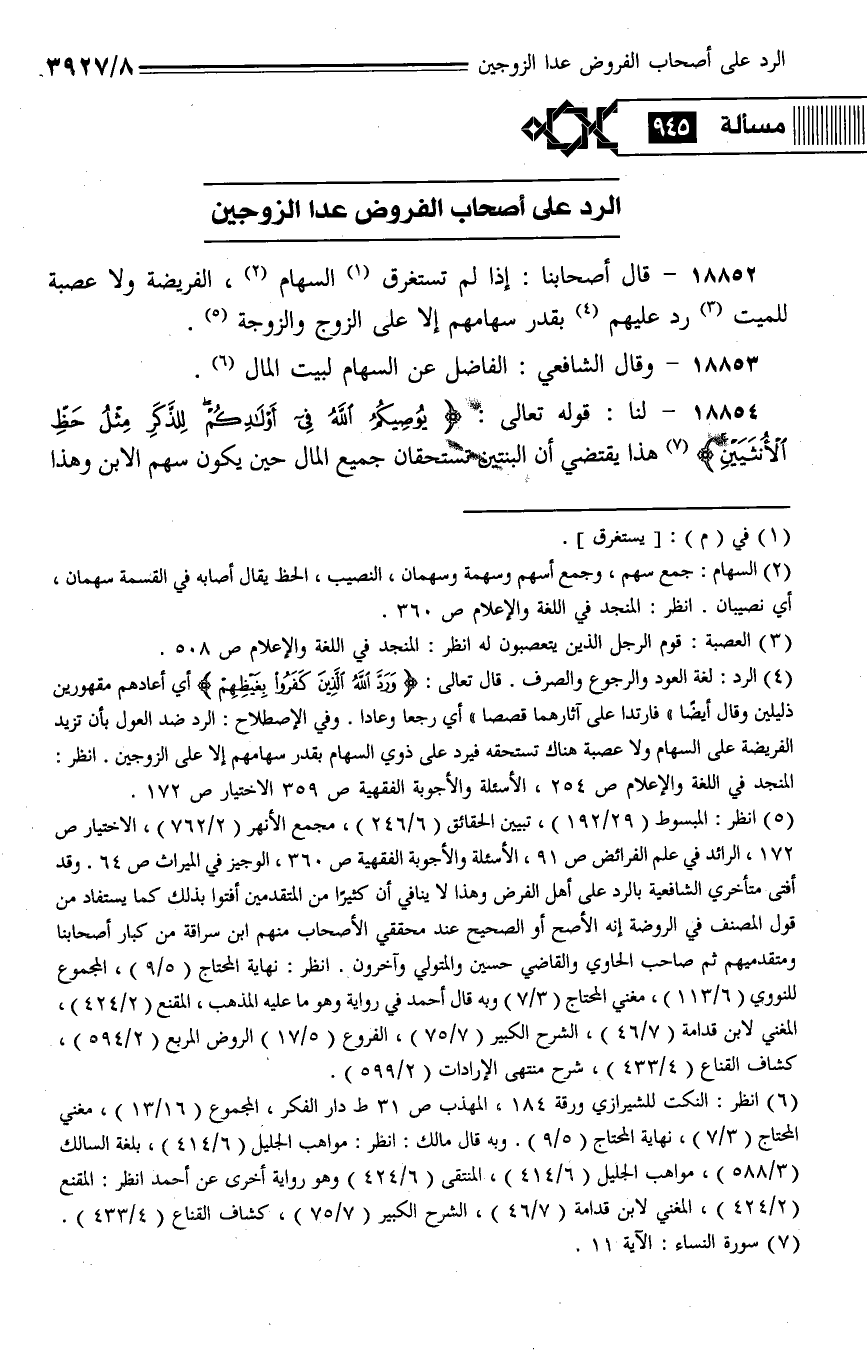 الرد على أصحاب الفروض عدا الزوجين ٣٩٢٧/٨
مسألة ٩٤٥
الرد على أصحاب الفروض عدا الزوجين
١٨٨٥٢ - قال أصحابنا : إذا لم تستغرق (١) السهام (٢) ، الفريضة ولا عصبة
للميت (٣) رد عليهم (٤) بقدر سهامهم إلا على الزوج والزوجة (٥) .
١٨٨٥٣ - وقال الشافعي : الفاضل عن السهام لبيت المال (٦) .
١٨٨٥٤ - لنا : قوله تعالى : ﴿ يُوصِيكُمُ ٱللَّهُ فِىٓ أَوْلَـٰدِكُمْ ۖ لِلذَّكَرِ مِثْلُ حَظِّ
ٱلْأُنثَيَيْنِ ﴾ (٧) هذا يقتضي أن البنتين تستحقان جميع المال حين يكون سهم الابن وهذا
(١) في ( م ) : [ يستغرق ] .
(٢) السهام : جمع سهم ، وجمع أسهم وسهمة وسهمان ، النصيب ، الحظ يقال أصابه في القسمة سهمان ،
أي نصيبان . انظر : المنجد في اللغة والإعلام ص ٣٦٠ .
(٣) العصبة : قوم الرجل الذين يتعصبون له انظر : المنجد في اللغة والإعلام ص ٥٠٨ .
(٤) الرد : لغة العود والرجوع والصرف . قال تعالى : ﴿ وَرَدَّ ٱللَّهُ ٱلَّذِينَ كَفَرُوا۟ بِغَيْظِهِمْ ﴾ أي أعادهم مقهورين
ذليلين وقال أيضًا » فارتدا على آثارهما قصصا » أي رجعا وعادا . وفي الإصطلاح : الرد ضد العول بأن تزيد
الفريضة على السهام ولا عصبة هناك تستحقه فيرد على ذوي السهام بقدر سهامهم إلا على الزوجين . انظر :
المنجد في اللغة والإعلام ص ٢٥٤ ، الأسئلة والأجوبة الفقهية ص ٣٥٩ الاختيار ص ١٧٢ .
(٥) انظر : المبسوط ( ١٩٢/٢٩ ) ، تبيين الحقائق ( ٢٤٦/٦ ) ، مجمع الأنهر ( ٧٦٢/٢ ) ، الاختيار ص
١٧٢ ، الرائد في علم الفرائض ص ٩١ ، الأسئلة والأجوبة الفقهية ص ٣٦٠ ، الوجيز في الميراث ص ٦٤ . وقد
أفتى متأخري الشافعية بالرد على أهل الفرض وهذا لا ينافي أن كثيرًا من المتقدمين أفتوا بذلك كما يستفاد من
قول المصنف في الروضة إنه الأصح أو الصحيح عند محققي الأصحاب منهم ابن سراقة من كبار أصحابنا
ومتقدميهم ثم صاحب الحاوي والقاضي حسين والمتولي وآخرون . انظر : نهاية المحتاج ( ٩/٥ ) ، المجموع
للنووي ( ١١٣/٦ ) ، مغني المحتاج ( ٧/٣ ) وبه قال أحمد في رواية وهو ما عليه المذهب ، المقنع ( ٤٢٤/٢ ) ،
المغني لابن قدامة ( ٤٦/٧ ) ، الشرح الكبير ( ٧٥/٧ ) ، الفروع ( ١٧/٥ ) الروض المربع ( ٥٩٤/٢ ) ،
كشاف القناع ( ٤٣٣/٤ ) ، شرح منتهى الإرادات ( ٥٩٩/٢ ) .
(٦) انظر : النكت للشيرازي ورقة ١٨٤ ، المهذب ص ٣١ ط دار الفكر ، المجموع ( ١٣/١٦ ) ، مغني
المحتاج ( ٧/٣ ) ، نهاية المحتاج ( ٩/٥ ) . وبه قال مالك : انظر : مواهب الجليل ( ٤١٤/٦ ) ، بلغة السالك
( ٥٨٨/٣ ) ، مواهب الجليل ( ٤١٤/٦ ) ، المنتقى ( ٤٢٤/٦ ) وهو رواية أخرى عن أحمد انظر : المقنع
( ٤٢٤/٢ ) ، المغني لابن قدامة ( ٤٦/٧ ) ، الشرح الكبير ( ٧٥/٧ ) ، كشاف القناع ( ٤٣٣/٤ ) .
(٧) سورة النساء : الآية ١١ .